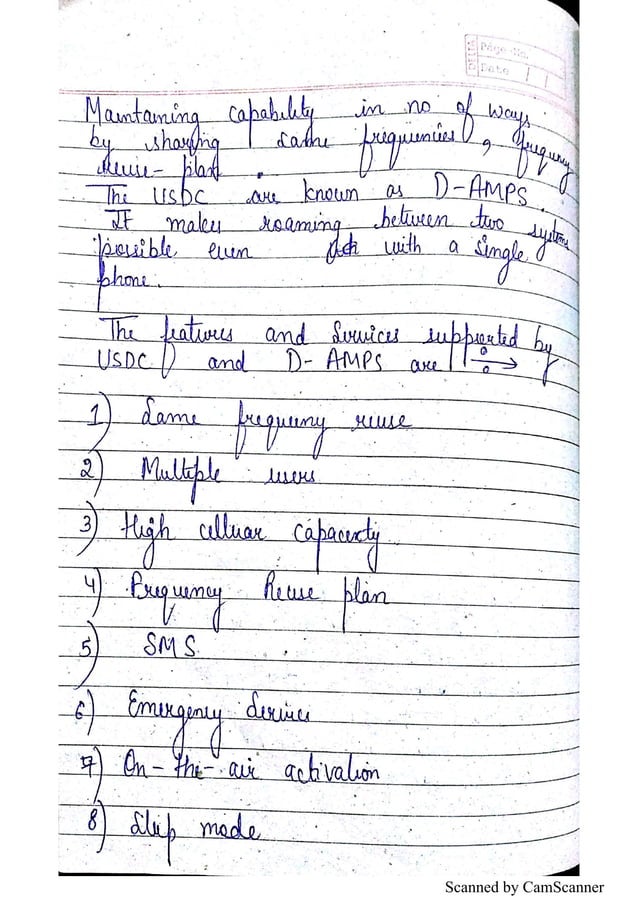 Page No.
Date
Maintaining capability in no of ways
by sharing same frequencies, frequency
reuse-plan.
The USDC are known as D-AMPS.
It makes roaming between two systems
possible even with a single
phone.
The features and Services supported by
USDC and D-AMPS are ÷→
1) Same frequency reuse
2) Multiple users
3) High celluar capacity
4) Frequency Reuse plan
5) SMS
6) Emergency Service
7) On-the-air activation
8) Sleep mode
Scanned by CamScanner